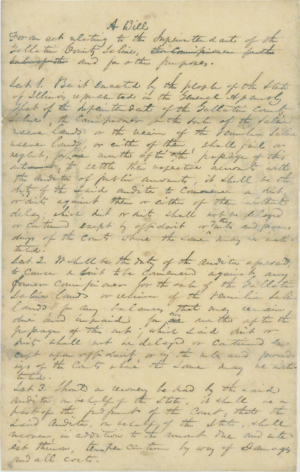 A Bill
For an act relating to the Superintendent of the
Gallatin County Saline, and for other purposes.
Sec 1. Be it enacted by the people of the State
of Illinois represented in the General Assembly
That if the Superintendent of the Gallatin County
Saline, the Commissioner for the sale of the Saline
reserve lands or the receiver of the Vermilion Saline
reserve lands, or either of them shall fail or
neglect, for months after the passage of this
to settle their respective accounts with
the Auditor of public accounts, it shall be the
duty of the said Auditor to commence suit
or suits against them or either of them without
delay, which suit or suits shall not be delayed
or continued except by affidavit or the rules and proceed
ings of the Court where the same may be insti
tuted.
Sec 2. It shall be the duty of the Auditor aforesaid,
to cause a suit to be commenced against any
former Commissioner for the sale of the Gallatin
Saline lands or receiver of the Vermilion Saline
lands for any balance that may remain
due and unpaid for months after the
passage of this act, which said suit or
suits shall not be delayed or continued ex
cept upon affidavit, or by the rules and proceed
ings of the Court where the same may be insti
tuted.
Sec 3. Should a recovery be had by the said
Auditor in behalf of the State, it shall be a
part of the judgment of the Court, that the
said Auditor, in behalf of the State, shall
recover, in addition to the amount due and inte
rest thereon, per centum by way of Damages
and all costs.